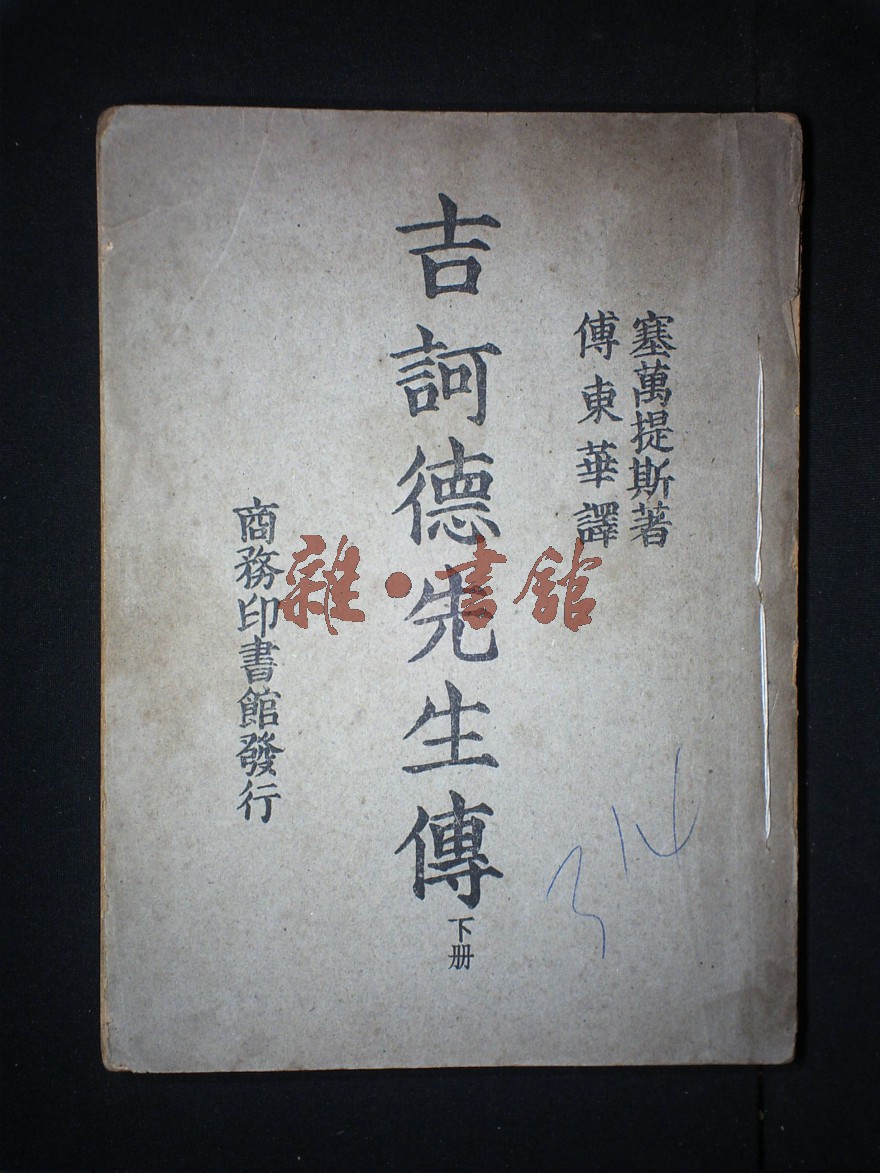 塞萬提斯著
傅東華譯
吉訶德先生傳
下册
商務印書館發行
雜·書館